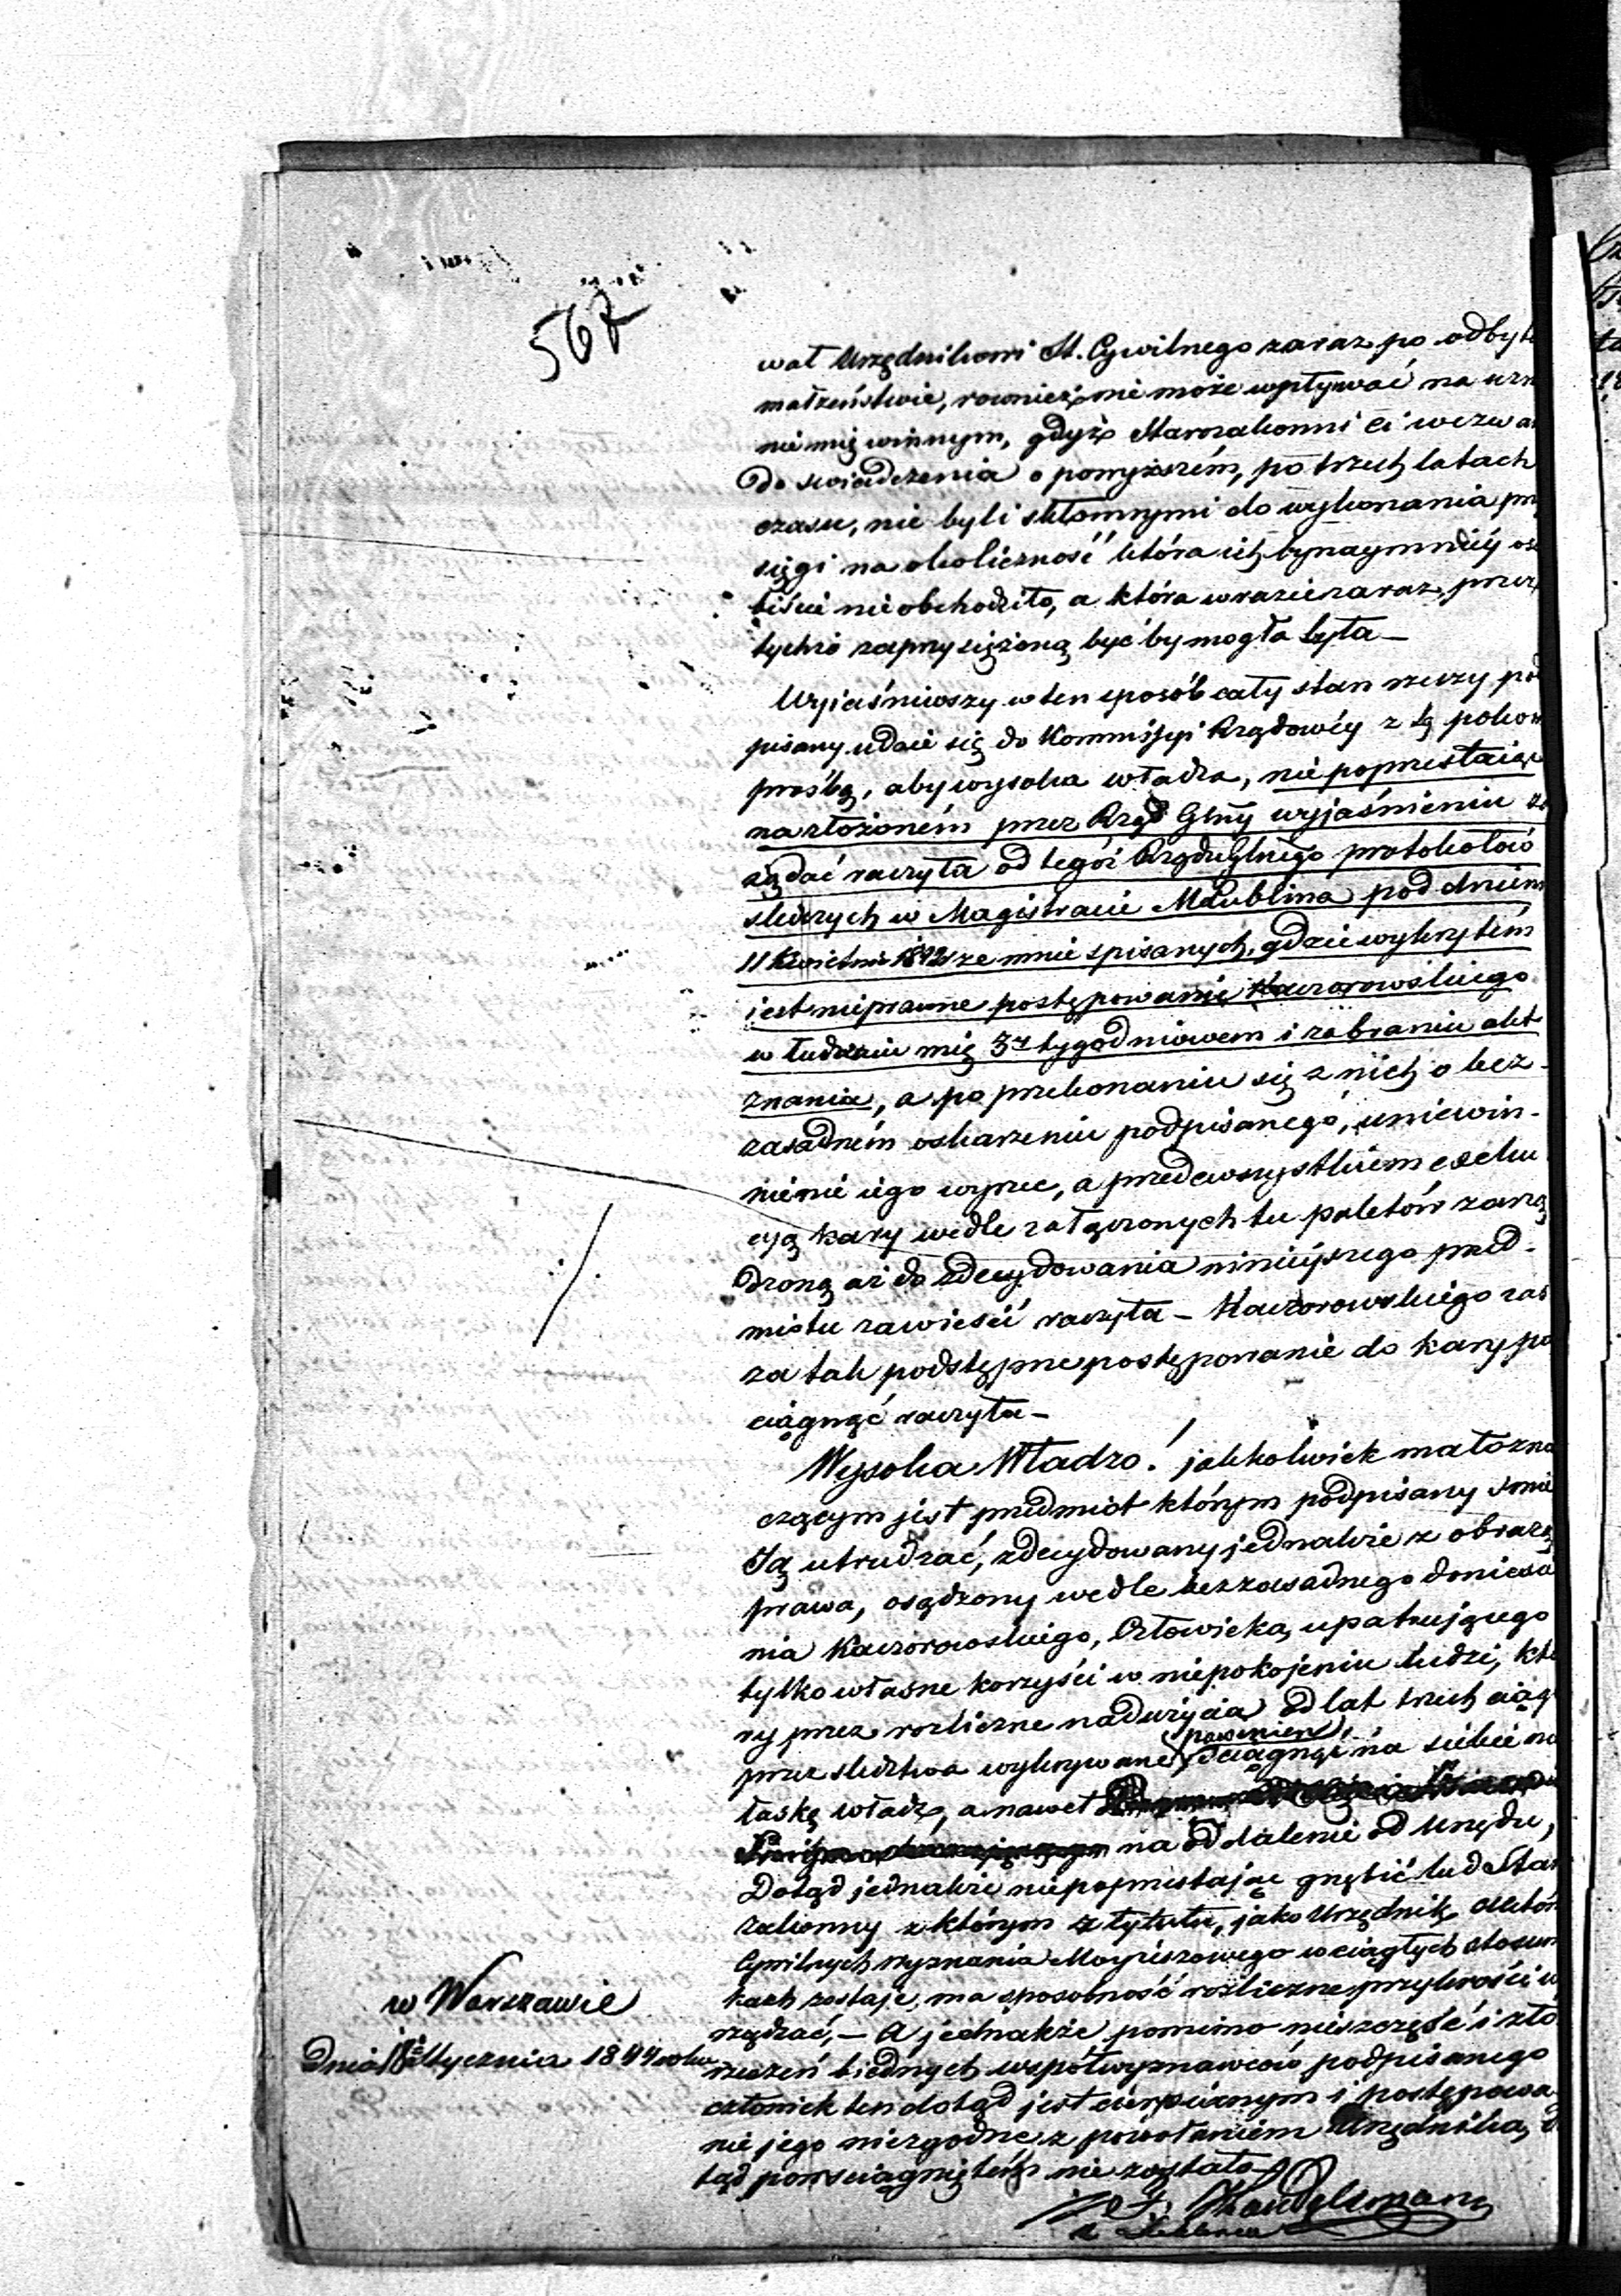 567
wał Urzędnikowi St. Cywilnego zaraz po odbyte
małzeństwie, rownież nie może wpływać na uzn
nie mię winnym, gdyż Starozakonni ci wezwa
do swiadczenia o powyższém, po trzech latach
czasu, nie byli skłonnymi do wykonania prz
sięgi na okoliczność która ich bynaymniéy oso
biście nie obchodziło, a która w razie zaraz, przez
tychże zaprzysiężoną być by mogła była —
Wyjaśniwszy w ten sposób cały stan rzeczy pod
pisany udaie się do Kommissyi Rządowéy z tą pokor
prośbą, aby wysoka władza, nie poprzestaiąc
na złożoném przez Rząd Glny wyjaśnieniu za
ządać raczyła od tegóż Rządu Glnego protokołów
sledczych w Magistracie M Lublina pod dniem
11 Kwietnia ze mnie spisanych, gdzie wykrytém
iest nieprawne postępowanie Kaczorowskiego
w łudzeniu mię 3ch tygodniowem i zabraniu akt
znania, a po przekonaniu się z nich o bez-
zasadném oskarzeniu podpisanego, uniewin-
nienie iego wyrzec, a przedewszystkiem exeku
cyą kary wedle załączonych tu paletów zarzą
dzoną aż do zdecydowania niniéyszego przed-
miotu zawiesić raczyła — Kaczorowskiego zas
za tak podstępne postępowanie do kary po
ciągnąć raczyła —
Wysoka Władzo! jakkolwiek małozna
czącym jest przedmiot którym podpisany smie
Ją utrudzać, zdecydowany jednakże z obrazą
prawa, osądzony wedle bezzasadnego doniesie
nia Kaczorowskiego, Człowieka, upatrującego
tylko własne korzyści w niepokojeniu ludzi, któ
ry przez rozliczne nadużycia od lat trzech ciągl
przez sledztwa wykrywane, powinien ściągnąć na siebie nie
łaskę władz, a nawet
na oddalenie od Urzędu,
Dotąd jednakże niepoprzestając gnębić lud Staro
zakonny z którym z tytułu, jako Urzędnik Aktów
Cywilnych wyznania Mojżeszowego w ciągłych stosun
kach zostaje, ma sposobność rozliczne przykrości w
rządzać, — A jednakże pomimo nieszczęść i zło
rzeczeń biednych współwyznawców podpisanego
człowiek ten dotąd jest cierpianym i postępowa
nie jego niezgodne z powołaniem Urzędnika, do
tąd powsciągniętém nie zostało —
w Warszawie
Dnia Stycznia 1844 roku
Handelsman
z Lublina